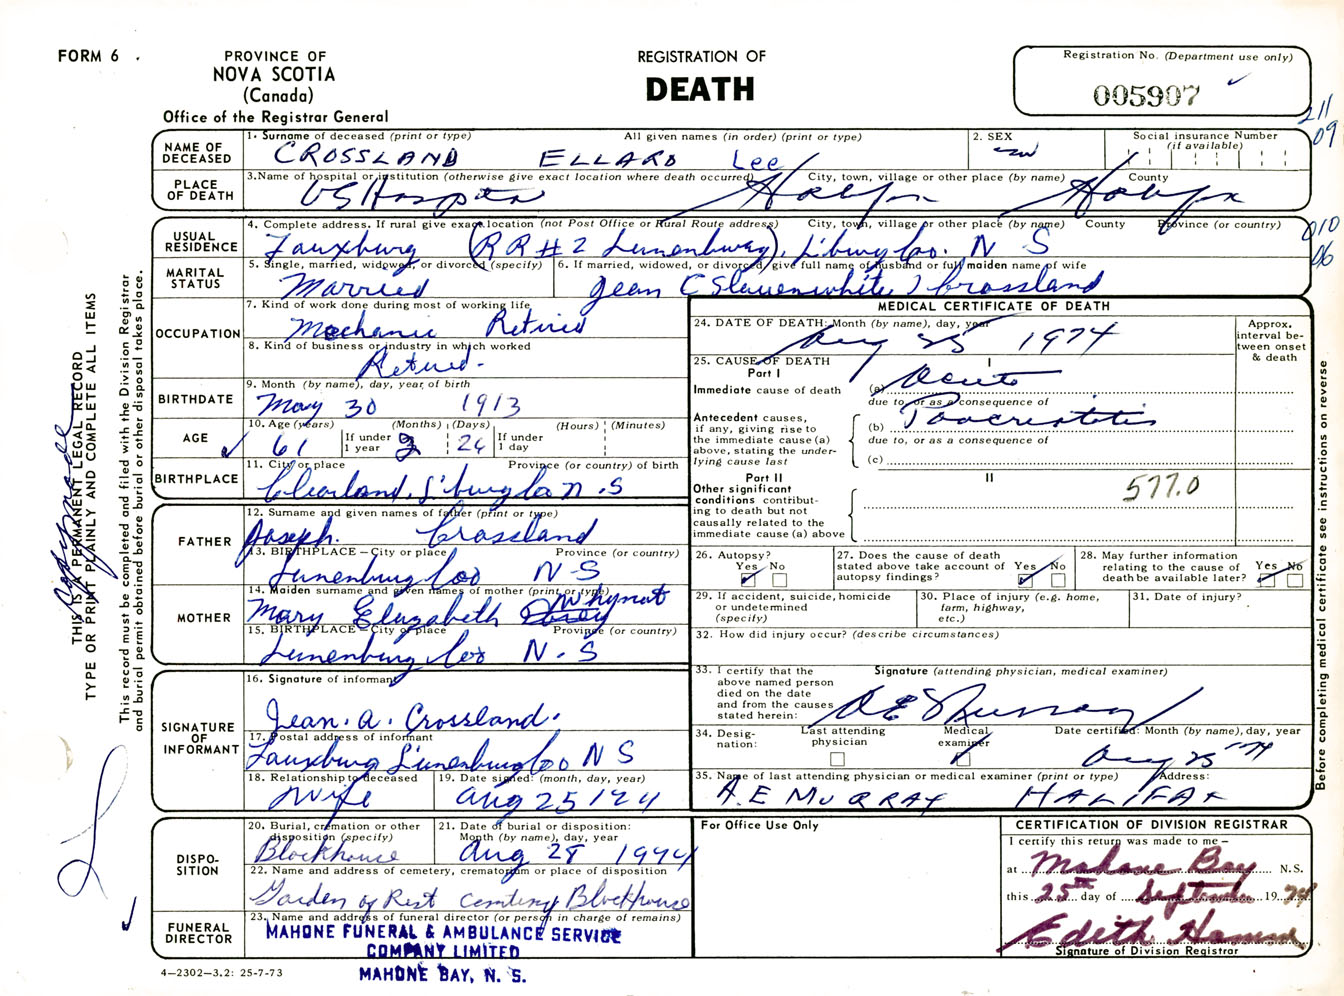 FORM 6
PROVINCE OF
NOVA SCOTIA
(Canada)
Office of the Registrar General
REGISTRATION OF
DEATH
Registration No. (Department use only)
005907
211
09
NAME OF DECEASED
1. Surname of deceased (print or type) All given names (in order) (print or type)
CROSSLAND ELLARD Lee
2. SEX
Social insurance Number
(if available)
PLACE OF DEATH
3. Name of hospital or institution (otherwise give exact location where death occurred) City, town, village or other place (by name) County
VG Hospital Halifax Halifax
USUAL RESIDENCE
4. Complete address. If rural give exact location (not Post Office or Rural Route address) City, town, village or other place (by name) County Province (or country)
Fauxburg (RR#2 Lunenburg), L'burg Co. N S
010
06
MARITAL STATUS
5. Single, married, widowed, or divorced (specify)
Married
6. If married, widowed, or divorced, give full name of husband or full maiden name of wife
Jean (Slauenwhite) Crossland
OCCUPATION
7. Kind of work done during most of working life
Mechanic Retired
8. Kind of business or industry in which worked
Retired.
BIRTHDATE
9. Month (by name), day, year of birth
May 30 1913
AGE
10. Age (years) (Months) (Days) (Hours) (Minutes)
If under 1 year
If under 1 day
61 2 26
BIRTHPLACE
11. City or place Province (or country) of birth
Clearland, L'burg Co N.S
FATHER
12. Surname and given names of father (print or type)
Joseph. Crossland
13. BIRTHPLACE – City or place Province (or country)
Lunenburg Co N-S
MOTHER
14. Maiden surname and given names of mother (print or type)
Mary Elizabeth Whynot
15. BIRTHPLACE – City or place Province (or country)
Lunenburg Co N.S
SIGNATURE OF INFORMANT
16. Signature of informant
Jean. A. Crossland.
17. Postal address of informant
Fauxburg Lunenburg Co N S
18. Relationship to deceased
Wife
19. Date signed: (month, day, year)
Aug 25/74
DISPOSITION
20. Burial, cremation or other disposition (specify)
Blockhouse
21. Date of burial or disposition:
Month (by name), day, year
Aug 28 1974
22. Name and address of cemetery, crematorium or place of disposition
Garden of Rest cemtery Blockhouse
FUNERAL DIRECTOR
23. Name and address of funeral director (or person in charge of remains)
MAHONE FUNERAL & AMBULANCE SERVICE
COMPANY LIMITED
MAHONE BAY, N. S.
4—2302—3.2: 25-7-73
MEDICAL CERTIFICATE OF DEATH
24. DATE OF DEATH: Month (by name), day, year
Aug 25 1974
Approx. interval between onset & death
25. CAUSE OF DEATH
Part I
I
Immediate cause of death
(a) Acute
due to, or as a consequence of
Antecedent causes, if any, giving rise to the immediate cause (a) above, stating the underlying cause last
(b) Pancreatitis
due to, or as a consequence of
(c)
Part II
II
Other significant conditions contributing to death but not causally related to the immediate cause (a) above
577.0
26. Autopsy?
Yes No
27. Does the cause of death stated above take account of autopsy findings?
Yes No
28. May further information relating to the cause of death be available later?
Yes No
29. If accident, suicide, homicide or undetermined (specify)
30. Place of injury (e.g. home, farm, highway, etc.)
31. Date of injury?
32. How did injury occur? (describe circumstances)
33. I certify that the above named person died on the date and from the causes stated herein:
Signature (attending physician, medical examiner)
A E Murray
34. Designation:
Last attending physician
Medical examiner
Date certified: Month (by name), day, year
Aug 25 '74
35. Name of last attending physician or medical examiner (print or type) Address:
A.E MURRAY HALIFAX
For Office Use Only
CERTIFICATION OF DIVISION REGISTRAR
I certify this return was made to me—
at Mahone Bay N.S.
this 25th day of September 1974
Edith Hamm
Signature of Division Registrar
THIS IS A PERMANENT LEGAL RECORD
TYPE OR PRINT PLAINLY AND COMPLETE ALL ITEMS
This record must be completed and filed with the Division Registrar
and burial permit obtained before burial or other disposal takes place.
Before completing medical certificate see instructions on reverse